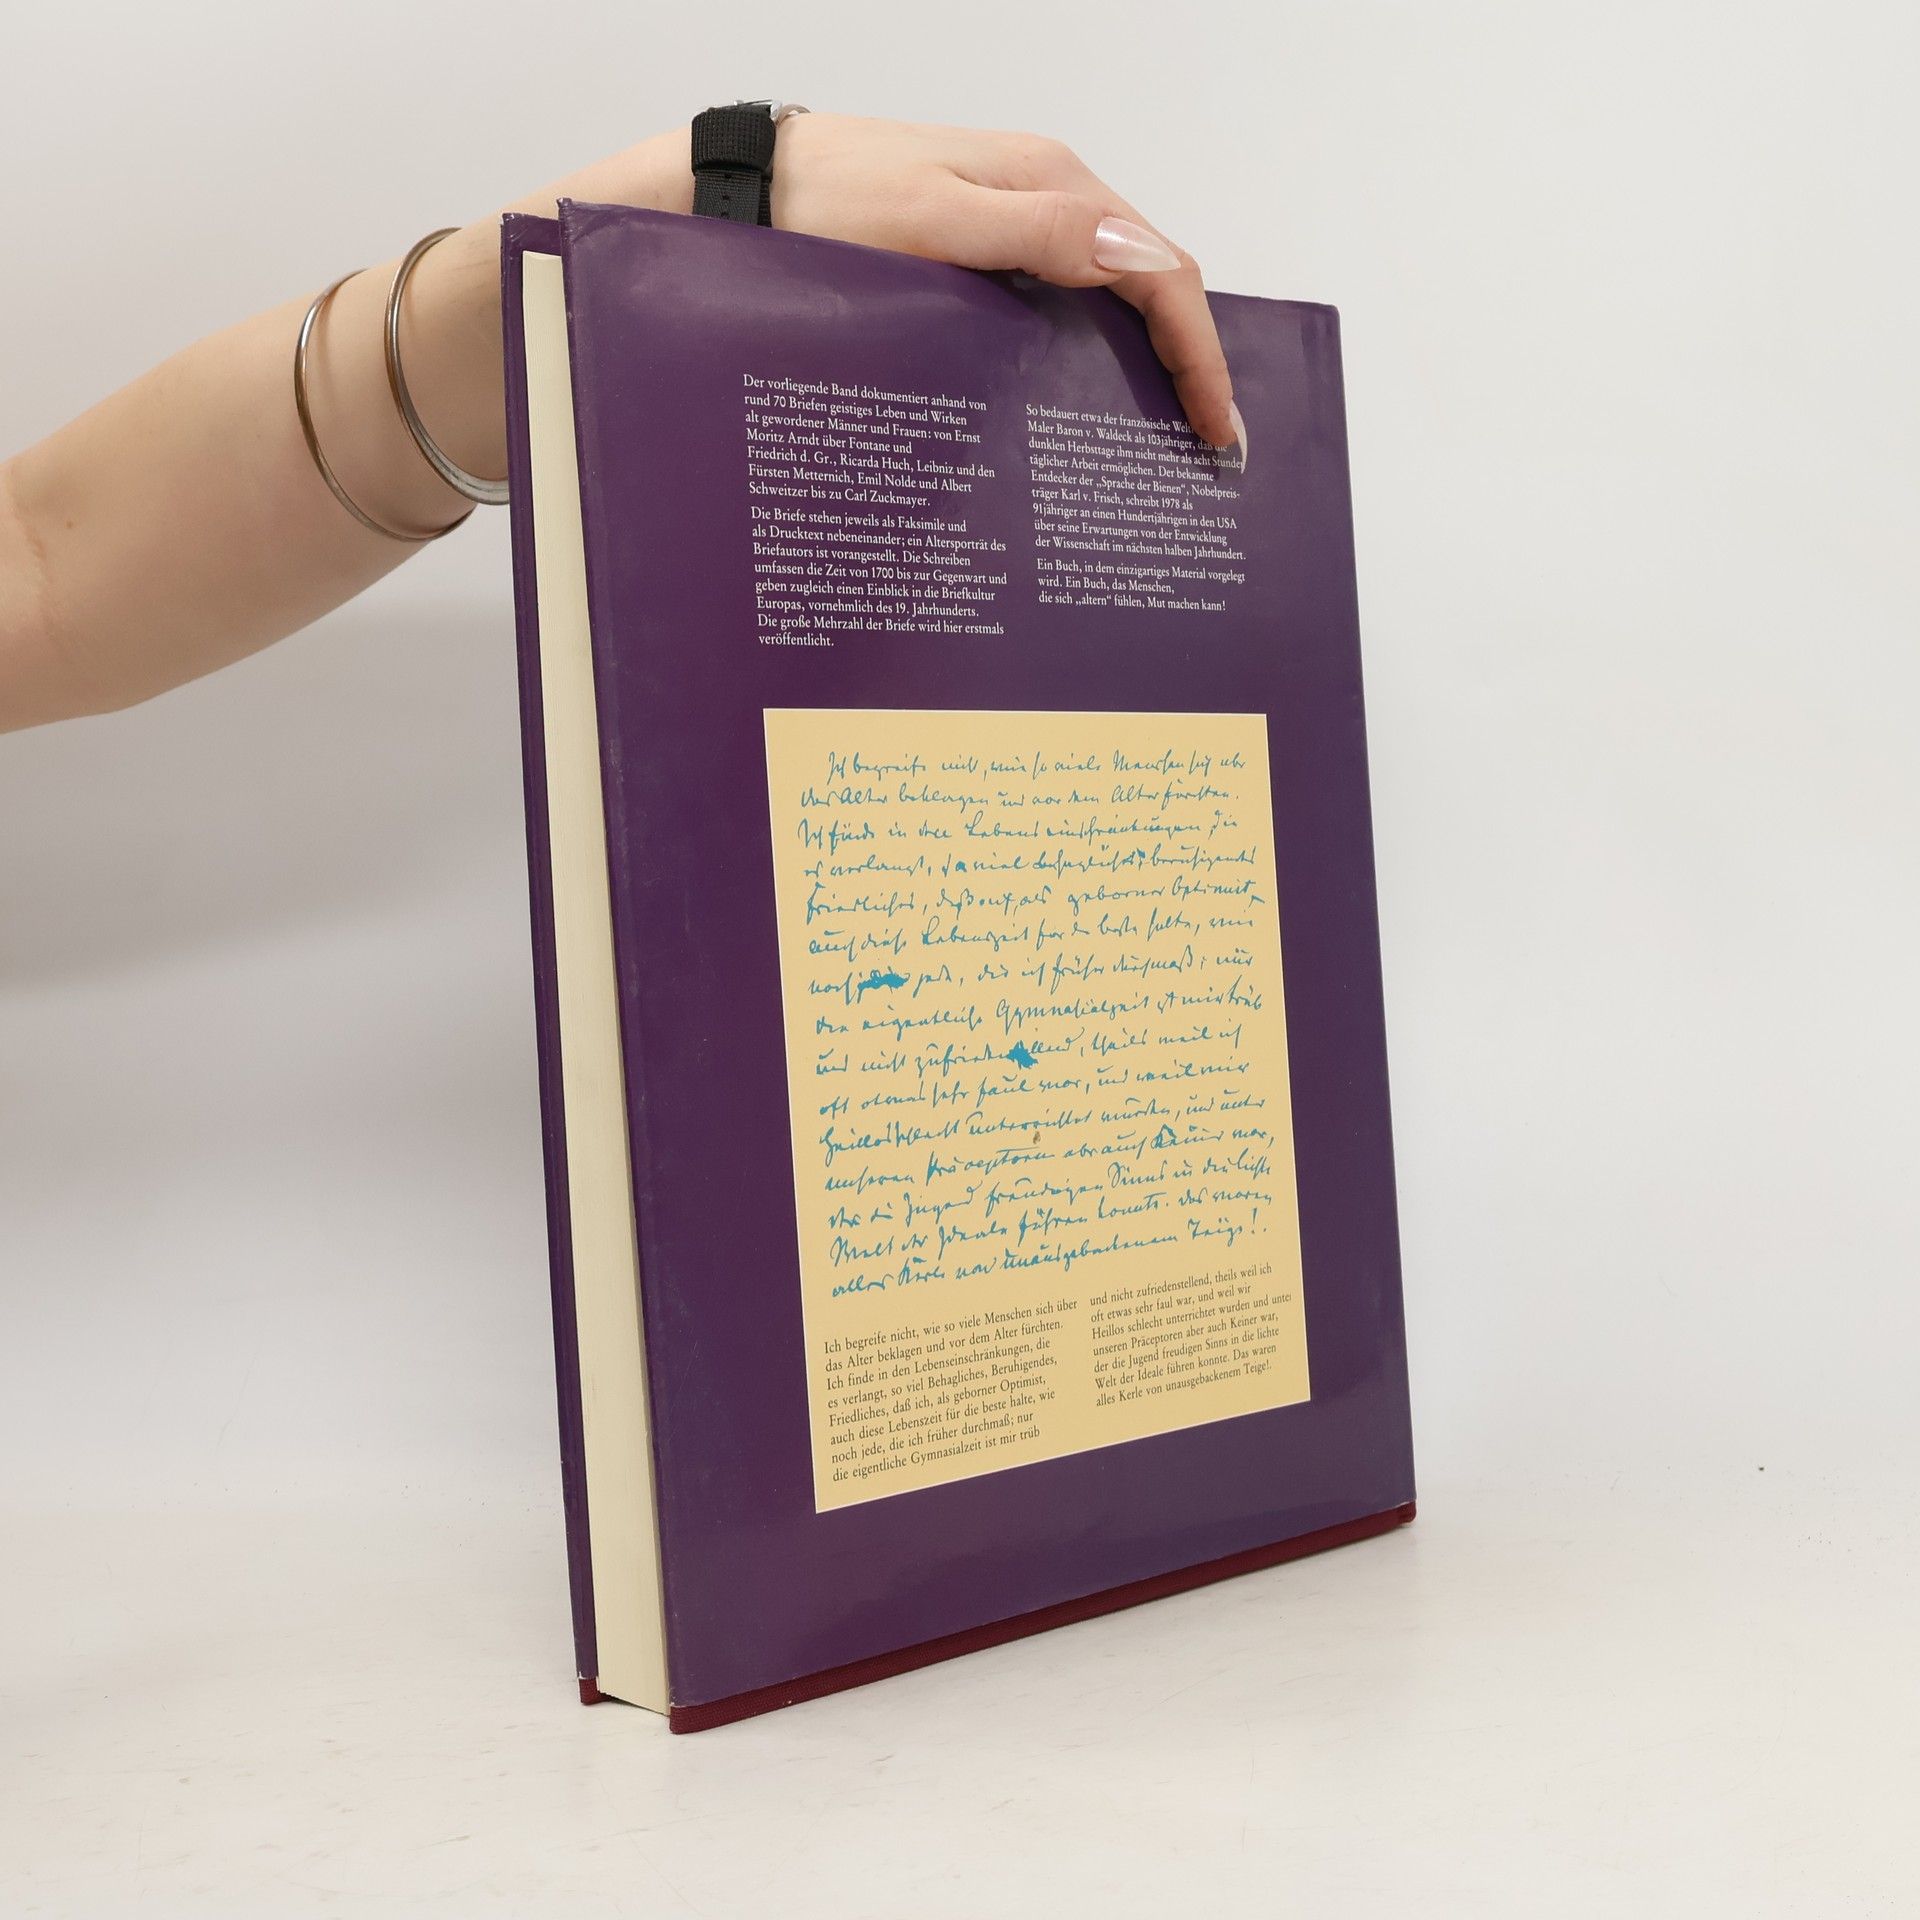 Der vorliegende Band dokumentiert anhand von
rund 70 Briefen geistiges Leben und Wirken
alt gewordener Männer und Frauen: von Ernst
Moritz Arndt über Fontane und
Friedrich d. Gr., Ricarda Huch, Leibniz und den
Fürsten Metternich, Emil Nolde und Albert
Schweitzer bis zu Carl Zuckmayer.
Die Briefe stehen jeweils als Faksimile und
als Drucktext nebeneinander; ein Altersporträt des
Briefautors ist vorangestellt. Die Schreiben
umfassen die Zeit von 1700 bis zur Gegenwart und
geben zugleich einen Einblick in die Briefkultur
Europas, vornehmlich des 19. Jahrhunderts.
Die große Mehrzahl der Briefe wird hier erstmals
veröffentlicht.
So bedauert etwa der französische
Maler Baron v. Waldeck als 103jähriger, daß die
dunklen Herbsttage ihm nicht mehr als acht Stunden
täglicher Arbeit ermöglichen. Der bekannte
Entdecker der „Sprache der Bienen“, Nobelpreis-
träger Karl v. Frisch, schreibt 1978 als
91jähriger an einen Hundertjährigen in den USA
über seine Erwartungen von der Entwicklung
der Wissenschaft im nächsten halben Jahrhundert.
Ein Buch, in dem einzigartiges Material vorgelegt
wird. Ein Buch, das Menschen,
die sich „altern“ fühlen, Mut machen kann!
Ich begreife nicht, wie so viele Menschen sich über
das Alter beklagen und vor dem Alter fürchten.
Ich finde in den Lebenseinschränkungen, die
es verlangt, so viel Behagliches, beruhigendes
Friedliches, daß ich, als geborner Optimist,
auch diese Lebenszeit für die beste halte, wie
noch jede, die ich früher durchmaß; nur
die eigentliche Gymnasialzeit ist mir trüb
und nicht zufriedenstellend, theils weil ich
oft etwas sehr faul war, und weil wir
Heillos schlecht unterrichtet wurden, und unter
unseren Präceptoren aber auch Keiner war,
der die Jugend freudigen Sinns in die lichte
Welt der Ideale führen konnte. Das waren
alles Kerle von unausgebackenem Teige!.
Ich begreife nicht, wie so viele Menschen sich über
das Alter beklagen und vor dem Alter fürchten.
Ich finde in den Lebenseinschränkungen, die
es verlangt, so viel Behagliches, Beruhigendes,
Friedliches, daß ich, als geborner Optimist,
auch diese Lebenszeit für die beste halte, wie
noch jede, die ich früher durchmaß; nur
die eigentliche Gymnasialzeit ist mir trüb
und nicht zufriedenstellend, theils weil ich
oft etwas sehr faul war, und weil wir
Heillos schlecht unterrichtet wurden und unter
unseren Präceptoren aber auch Keiner war,
der die Jugend freudigen Sinns in die lichte
Welt der Ideale führen konnte. Das waren
alles Kerle von unausgebackenem Teige!.